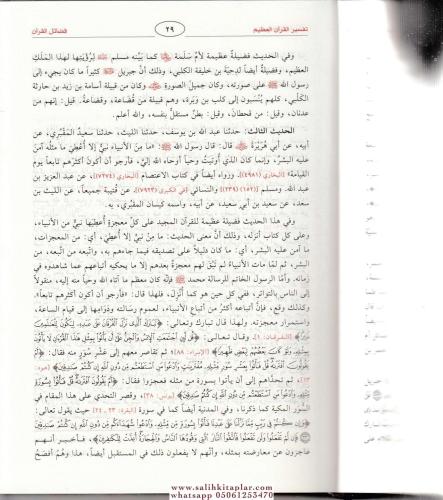 تفسير القرآن العظيم
٢٩
فضائل القرآن
وفي الحديث فضيلةٌ عظيمة لأمّ سَلَمة ﷺ كما بيّنه مسلم ﷺ لرؤيتها لهذا المَلَكِ
العظيم، وفضيلةٌ أيضاً لدِحْيَة بن خليفة الكلبي، وذلك أنّ جبريل ﷺ كثيراً ما كان يجيء إلى
رسول الله ﷺ على صورته، وكان جميلَ الصورة وكان من قبيلة أسامة بن زيد بن حارثة
الكَلْبي، كلهم يُنْسَبون إلى كلب بن وَبَرة، وهم قبيلة من قُضاعة، وقضاعةُ، قيل: إنهم من
عدنان، وقيل: من قحطان، وقيل: بطنٌ مستقلٌّ بنفسه، والله أعلم.
الحديث الثالث: حدثنا عبد الله بن يوسف، حدثنا الليث، حدثنا سعيدٌ المَقْبُري، عن
أبيه، عن أبي هُرَيْرَةَ قال: قال رسول الله ﷺ: «ما مِنَ الأنبياء نبيٌّ إلا أُعْطِيَ ما مثلُه آمَنَ
عليه البشرُ، وإنما كان الذي أُوتيتُ وحياً أوحاه الله إليَّ، فأرجو أن أكونَ أكثرَهم تابعاً يوم
القيامة» [البخاري (٤٩٨١)]. ورواه أيضاً في كتاب الاعتصام [البخاري (٧٢٧٤)]، عن عبد العزيز بن
عبد الله. ومسلم [(١٥٢) (٢٣٩)] والنسائي [في الكبرى (٧٩٢٣)]، عن قُتيبة جميعاً، عن الليث بن
سعد، عن سعيد بن أبي سعيد، عن أبيه، واسمه كيسان المقبُري، به.
وفي هذا الحديث فضيلة عظيمة للقرآن المجيد على كلِّ معجزةٍ أُعطيَها نبيٌّ من الأنبياء،
وعلى كل كتاب أنزله، وذلك أنَّ معنى الحديث: ما مِنْ نبيٍّ إلا أُعطِيَ، أي: من المعجزات،
ما آمن عليه البشر، أي: ما كان دليلاً على تصديقه فيما جاءهم به، واتبعه من اتّبعه، من
البشر، ثم لمّا مات الأنبياءُ لم تَبْقَ لهم معجزةٌ بعدهم إلا ما يحكيه أتباعهم عما شاهدوه في
زمانه، وأمّا الرسول الخاتم للرسالة محمد ﷺ فإنّه كان معظم ما آتاه الله وحياً منه إليه، منقولاً
إلى الناس بالتواتر، ففي كل حين هو كما أُنزل، فلهذا قال: «فأرجو أن أكون أكثرهم تابعاً»،
وكذلك وقع، فإنّ أتباعه أكثر من أتباع الأنبياء، لعموم رسالته ودوامِها إلى قيام الساعة،
واستمرار معجزته. ولهذا قال تبارك وتعالى: ﴿تَبَارَكَ الَّذِي نَزَّلَ الْفُرْقَانَ عَلَى عَبْدِهِ لِيَكُونَ لِلْعَالَمِينَ نَذِيرًا﴾
[الفرقان: ١]. وقال تعالى: ﴿قُل لَّئِنِ اجْتَمَعَتِ الْإِنسُ وَالْجِنُّ عَلَى أَن يَأْتُوا بِمِثْلِ هَذَا الْقُرْآنِ لَا يَأْتُونَ
بِمِثْلِهِ وَلَوْ كَانَ بَعْضُهُمْ لِبَعْضٍ ظَهِيرًا﴾ [الإسراء: ٨٨]؛ ثم تقاصر معهم إلى عَشْرِ سُوَرٍ منه فقال: ﴿أَمْ
يَقُولُونَ افْتَرَاهُ قُلْ فَأْتُوا بِعَشْرِ سُوَرٍ مِّثْلِهِ مُفْتَرَيَاتٍ وَادْعُوا مَنِ اسْتَطَعْتُم مِّن دُونِ اللَّهِ إِن كُنتُمْ صَادِقِينَ﴾ [هود:
١٣]؛ ثم تحدّاهم إلى أن يأتوا بسورة من مثله فعجزوا فقال: ﴿أَمْ يَقُولُونَ افْتَرَاهُ قُلْ فَأْتُوا بِسُورَةٍ
مِّثْلِهِ وَادْعُوا مَنِ اسْتَطَعْتُم مِّن دُونِ اللَّهِ إِن كُنتُمْ صَادِقِينَ﴾ [يونس: ٣٨]، وقصر التحدي على هذا المقام في
السُّوَرِ المكية كما ذكرنا، وفي المدنية أيضاً كما في سورة [البقرة: ٢٣ ـ ٢٤] حيث يقول تعالى:
﴿وَإِن كُنتُمْ فِي رَيْبٍ مِّمَّا نَزَّلْنَا عَلَى عَبْدِنَا فَأْتُوا بِسُورَةٍ مِّن مِّثْلِهِ وَادْعُوا شُهَدَاءَكُم مِّن دُونِ اللَّهِ إِن كُنتُمْ صَادِقِينَ
فَإِن لَّمْ تَفْعَلُوا وَلَن تَفْعَلُوا فَاتَّقُوا النَّارَ الَّتِي وَقُودُهَا النَّاسُ وَالْحِجَارَةُ أُعِدَّتْ لِلْكَافِرِينَ﴾، فأخبرهم أنهم
عاجزون عن معارضته بمثله، وأنهم لا يفعلون ذلك في المستقبل أيضاً، هذا وهُمْ أفصحُ
www.salihkitaplar.com
whatsapp 05061253470